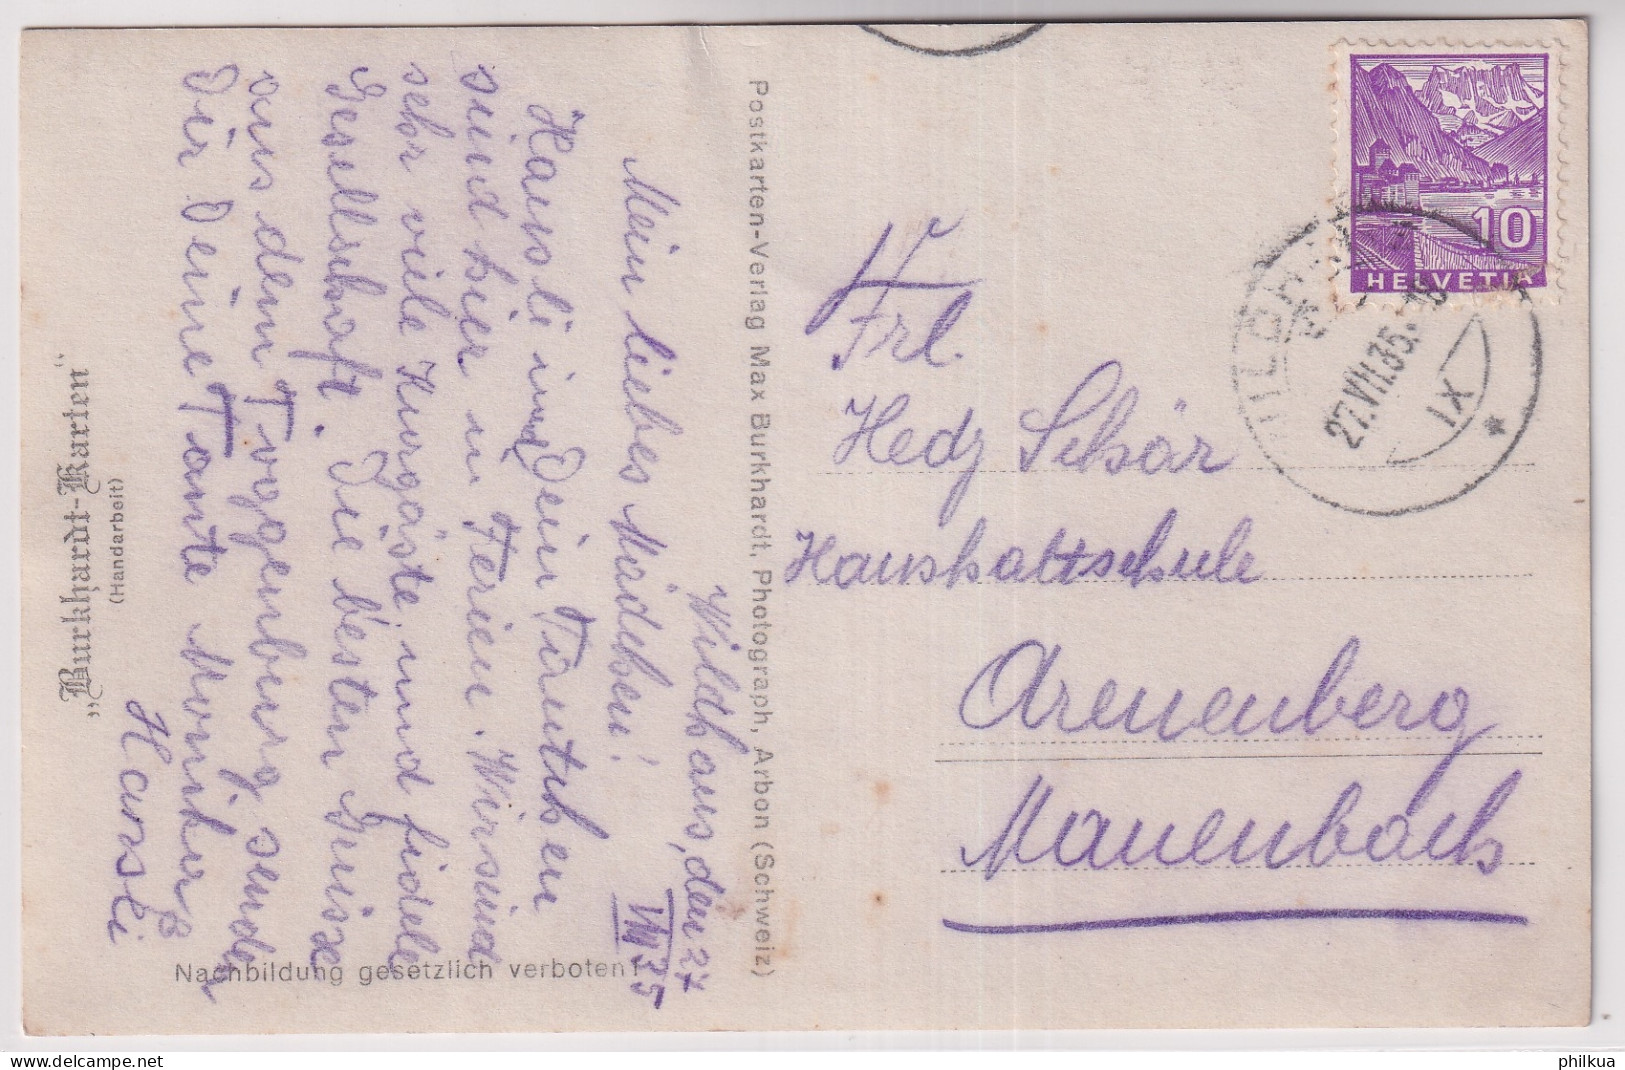 Wildhaus, den 27
VII 35
Mein liebes Mädchen!
Hansli und Dein Tantchen
sind hier in Ferien. Wir sind
sehr viele Kurgäste und fidele
Gesellschaft. Die besten Grüsse
aus dem Toggenburg sendet
Dir Deine Tante Monika
& Hansli
„Burkhardt-Karten“
(Handarbeit)
Nachbildung gesetzlich verboten!
Postkarten-Verlag Max Burkhardt, Photograph, Arbon (Schweiz)
10
HELVETIA
27.VII.35.
IX
Frl.
Hedy Schär
Haushaltschule
Arenenberg
Mannenbach
philkua